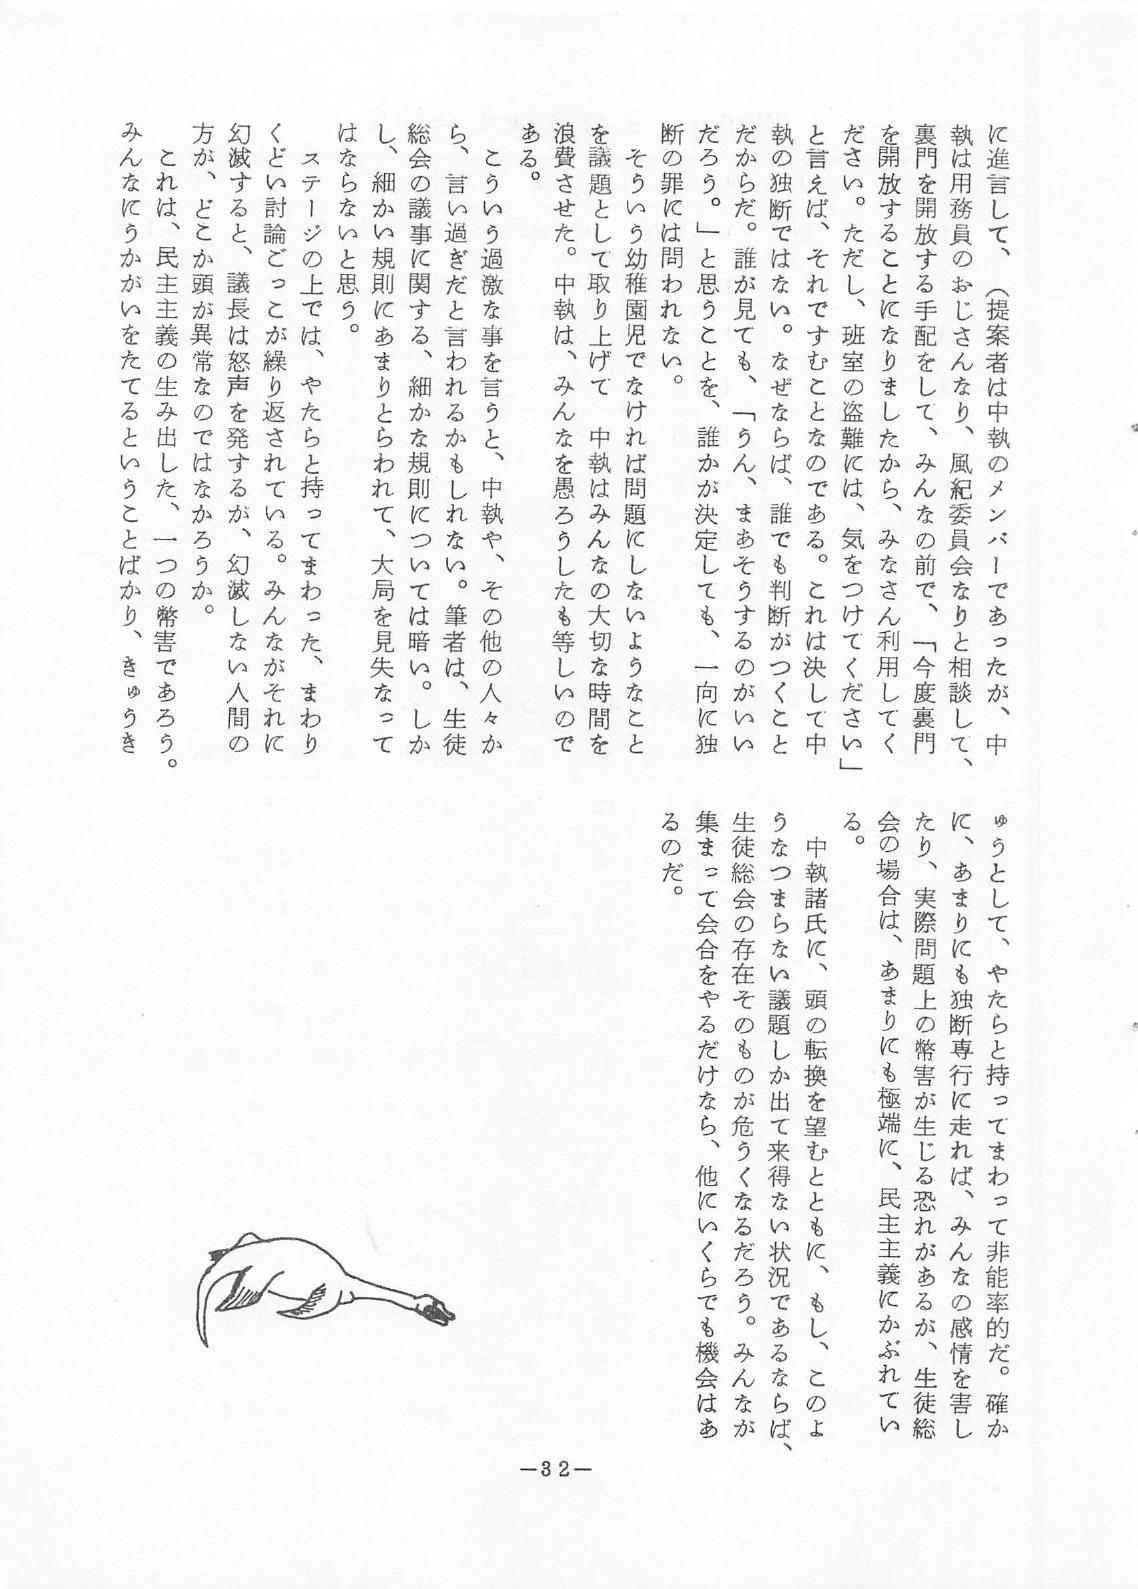 に進言して、（提案者は中執のメンバーであったが、中
執は用務員のおじさんなり、風紀委員会なりと相談して、
裏門を開放する手配をして、みんなの前で、「今度裏門
を開放することになりましたから、みなさん利用してく
ださい。ただし、班室の盗難には、気をつけてください」
と言えば、それですむことなのである。これは決して中
執の独断ではない。なぜならば、誰でも判断がつくこと
だからだ。誰が見ても、「うん、まあそうするのがいい
だろう。」と思うことを、誰かが決定しても、一向に独
断の罪には問われない。
そういう幼稚園児でなければ問題にしないようなこと
を議題として取り上げて　中執はみんなの大切な時間を
浪費させた。中執は、みんなを愚ろうしたも等しいので
ある。
こういう過激な事を言うと、中執や、その他の人々か
ら、言い過ぎだと言われるかもしれない。筆者は、生徒
総会の議事に関する、細かな規則については暗い。しか
し、細かい規則にあまりとらわれて、大局を見失なって
はならないと思う。
ステージの上では、やたらと持ってまわった、まわり
くどい討論ごっこが繰り返されている。みんながそれに
幻滅すると、議長は怒声を発するが、幻滅しない人間の
方が、どこか頭が異常なのではなかろうか。
これは、民主主義の生み出した、一つの幣害であろう。
みんなにうかがいをたてるということばかり、きゅうき
ゅうとして、やたらと持ってまわって非能率的だ。確か
に、あまりにも独断専行に走れば、みんなの感情を害し
たり、実際問題上の幣害が生じる恐れがあるが、生徒総
会の場合は、あまりにも極端に、民主主義にかぶれてい
る。
中執諸氏に、頭の転換を望むとともに、もし、このよ
うなつまらない議題しか出て来得ない状況であるならば、
生徒総会の存在そのものが危うくなるだろう。みんなが
集まって会合をやるだけなら、他にいくらでも機会はあ
るのだ。
—32—